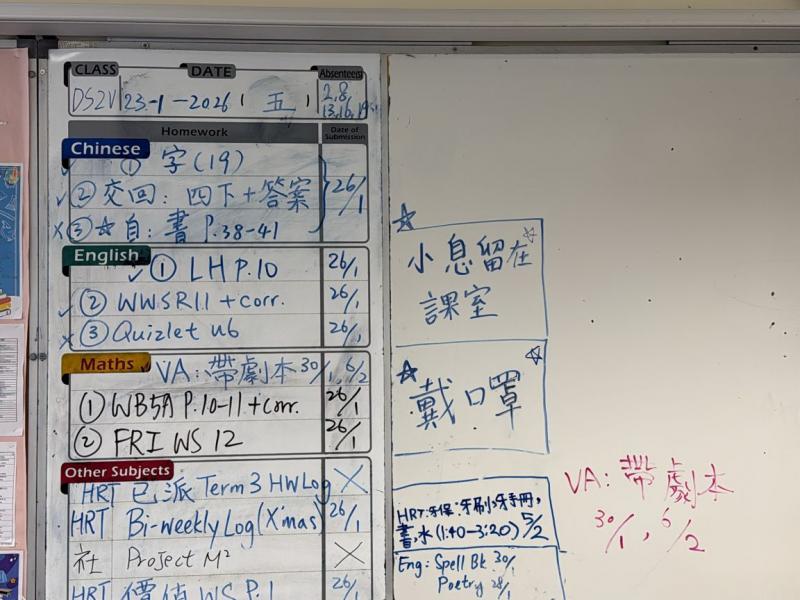 CLASS DATE Absentee(s)
DS2V 23-1-2026 五 2,8,
13,16,19
Homework Date of Submission
Chinese
① 字(19)
② 交回: 四下+答案 26/1
③ ☆自: 書 P.38-41
English
① LH P.10 26/1
② WWSR1.1 + corr. 26/1
③ Quizlet u6 26/1
Maths
VA: 帶劇本 30/1, 6/2
① WB5A P.10-11 + corr. 26/1
② FRI WS 12 26/1
Other Subjects
HRT 已派 Term 3 HW Log X
HRT Bi-weekly Log (X'mas) 26/1
社 Project M² X
HRT 價值 WS P.1 26/1
☆ 小息留在 ☆
課室
☆ 戴口罩 ☆
HRT: 牙保: 牙刷, 牙手冊,
書, 水 (1:40-3:20) 5/2
Eng: Spell Bk 30/1
Poetry 28/1
VA: 帶劇本
30/1, 6/2